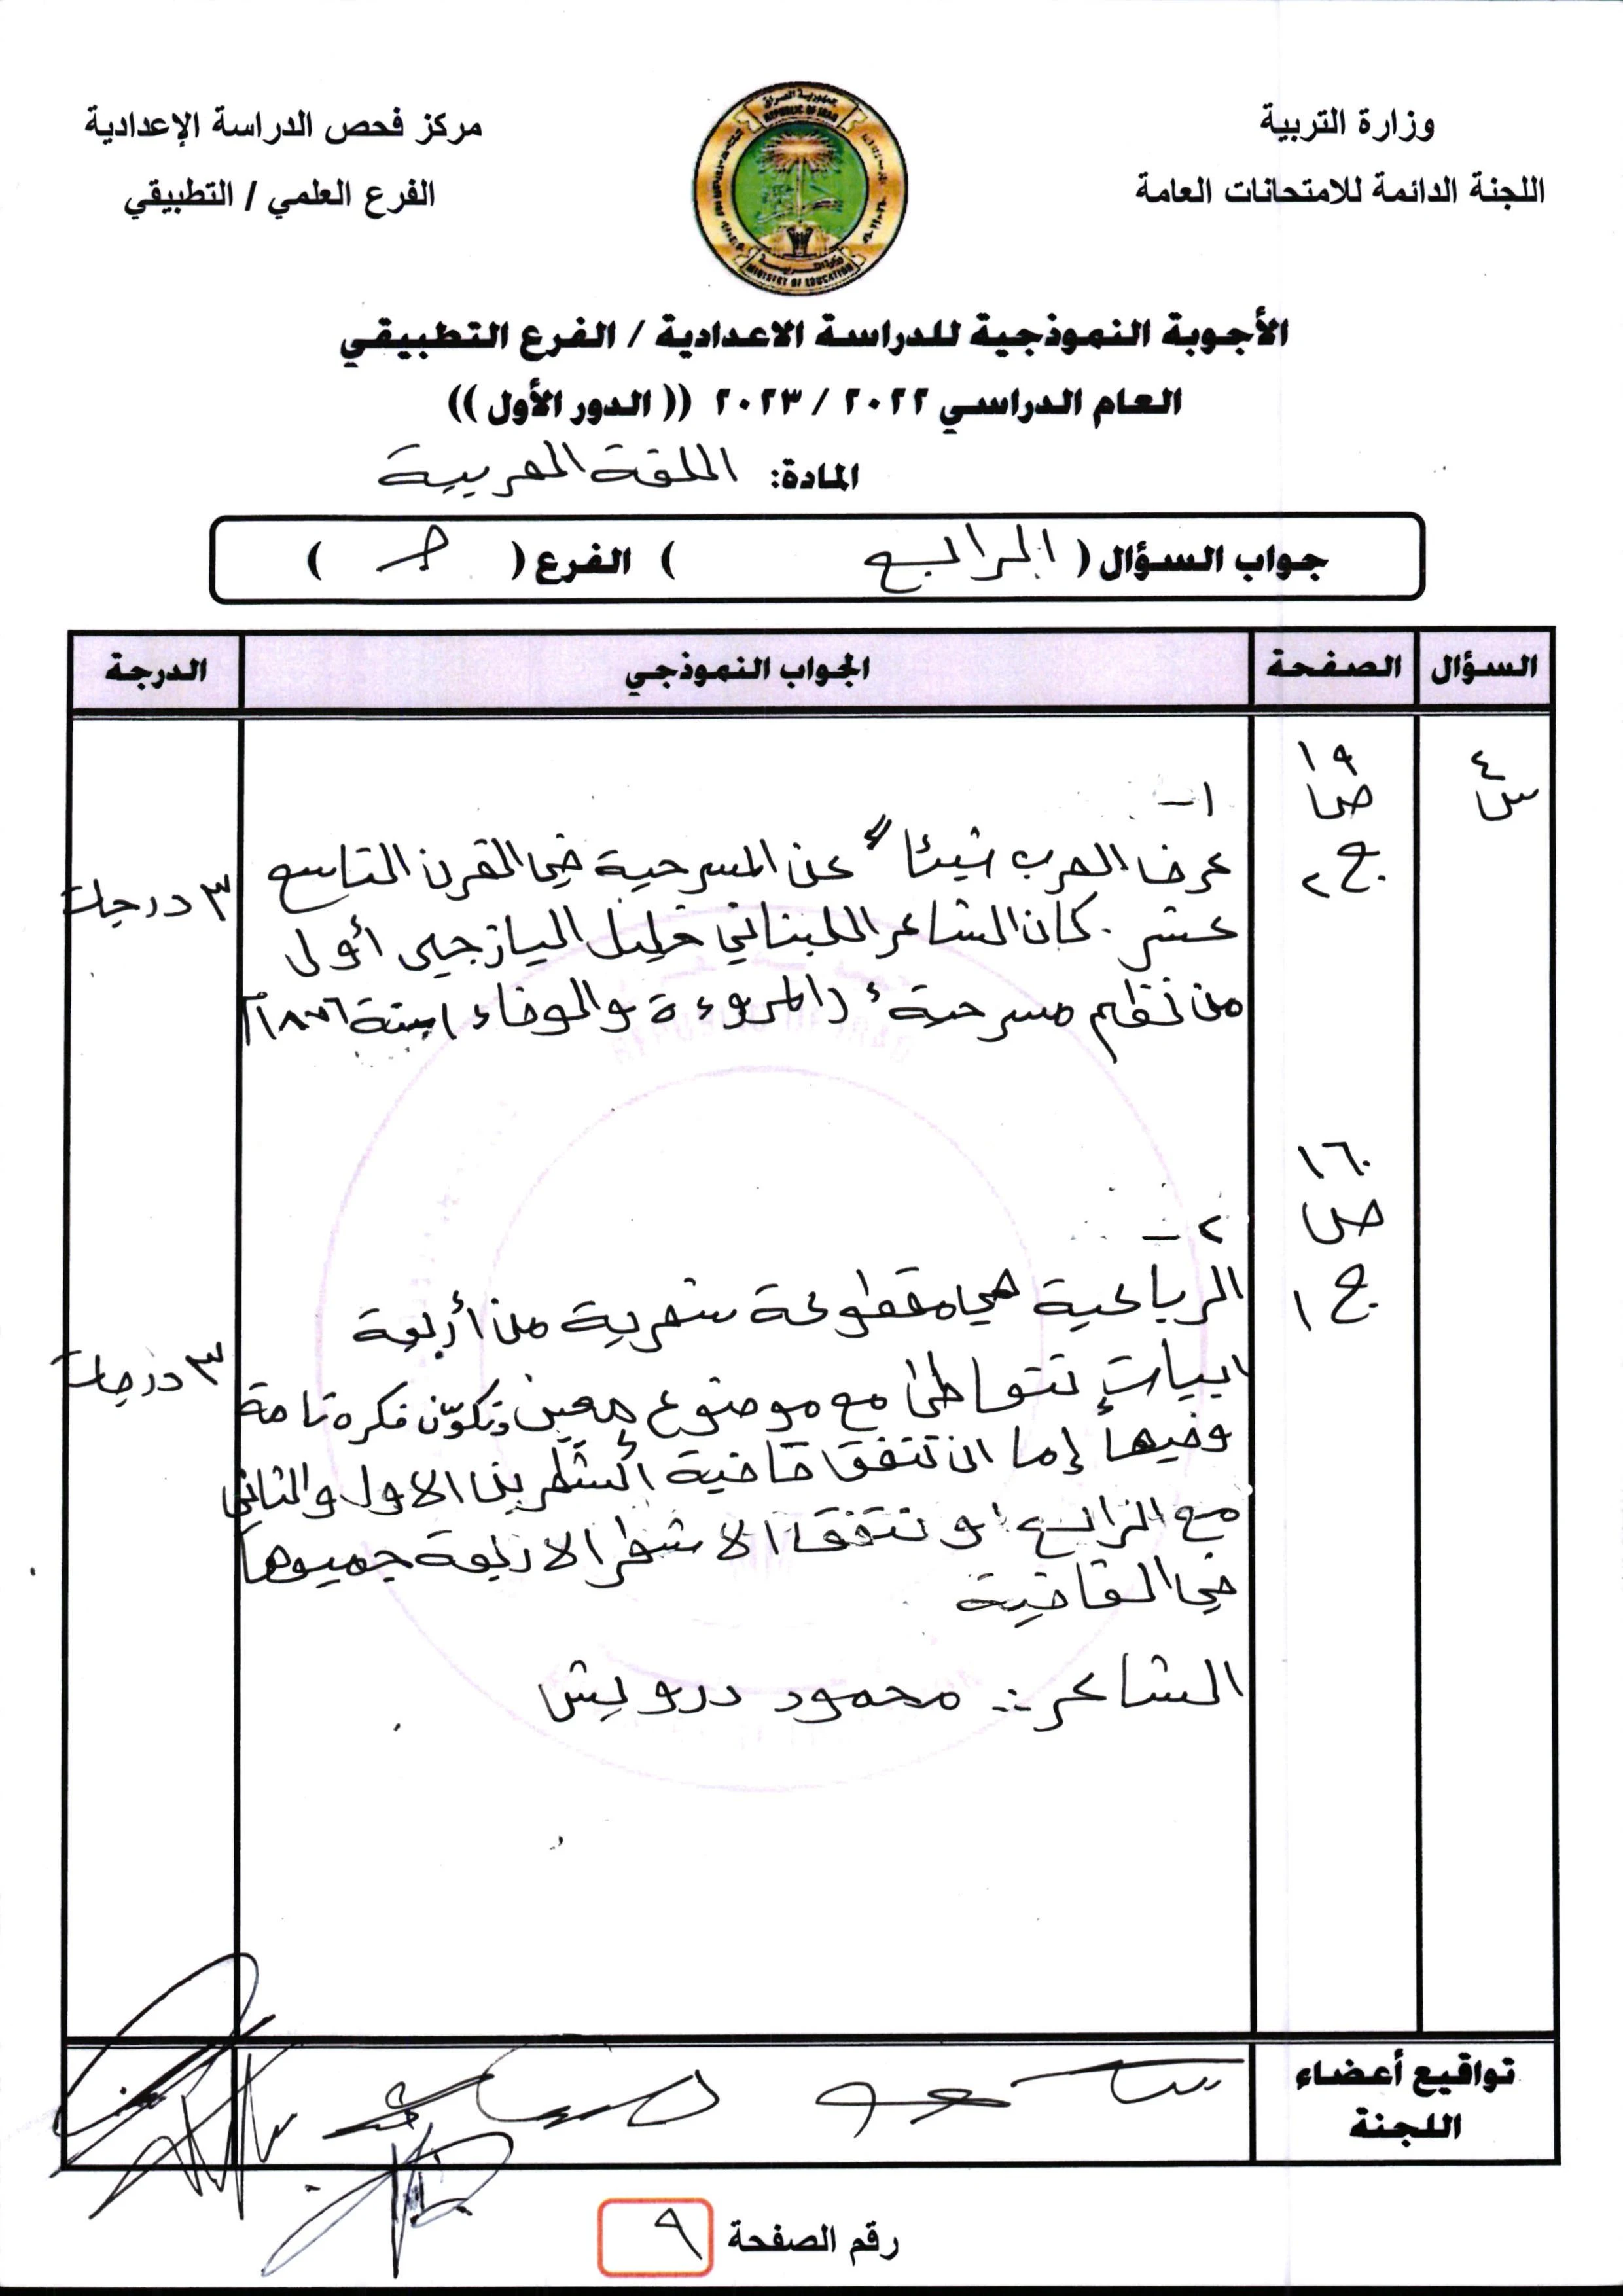 وزارة التربية
اللجنة الدائمة للامتحانات العامة
جمهورية العراق
REPUBLIC OF IRAQ
MINISTRY OF EDUCATION
مركز فحص الدراسة الإعدادية
الفرع العلمي / التطبيقي
الأجوبة النموذجية للدراسة الاعدادية / الفرع التطبيقي
العام الدراسي ٢٠٢٢ / ٢٠٢٣ (( الدور الأول ))
المادة: اللغة العربية
جواب السؤال ( الرابع ) الفرع ( جـ )
السؤال الصفحة الجواب النموذجي الدرجة
س٤
١٩
ص
ج٢
١-
عرف العرب شيئاً عن المسرحية في القرن التاسع
عشر . كان الشاعر اللبناني خليل اليازجي أول
من نظم مسرحية (المروءة والوفاء) سنة ١٨٧٦م
٣ درجات
١٦٠
ص
ج١
٢-
الرباعية هي مقطوعة شعرية من أربعة
ابيات تتواطئ مع موضوع معين وتكوّن فكره تامة
وفيها إما ان تتفق قافية الشطرين الاول والثاني
مع الرابع او تتفق الاشطر الاربعة جميعها
في القافية
٣ درجات
الشاعر :- محمود درويش
تواقيع أعضاء
اللجنة
رقم الصفحة ٩